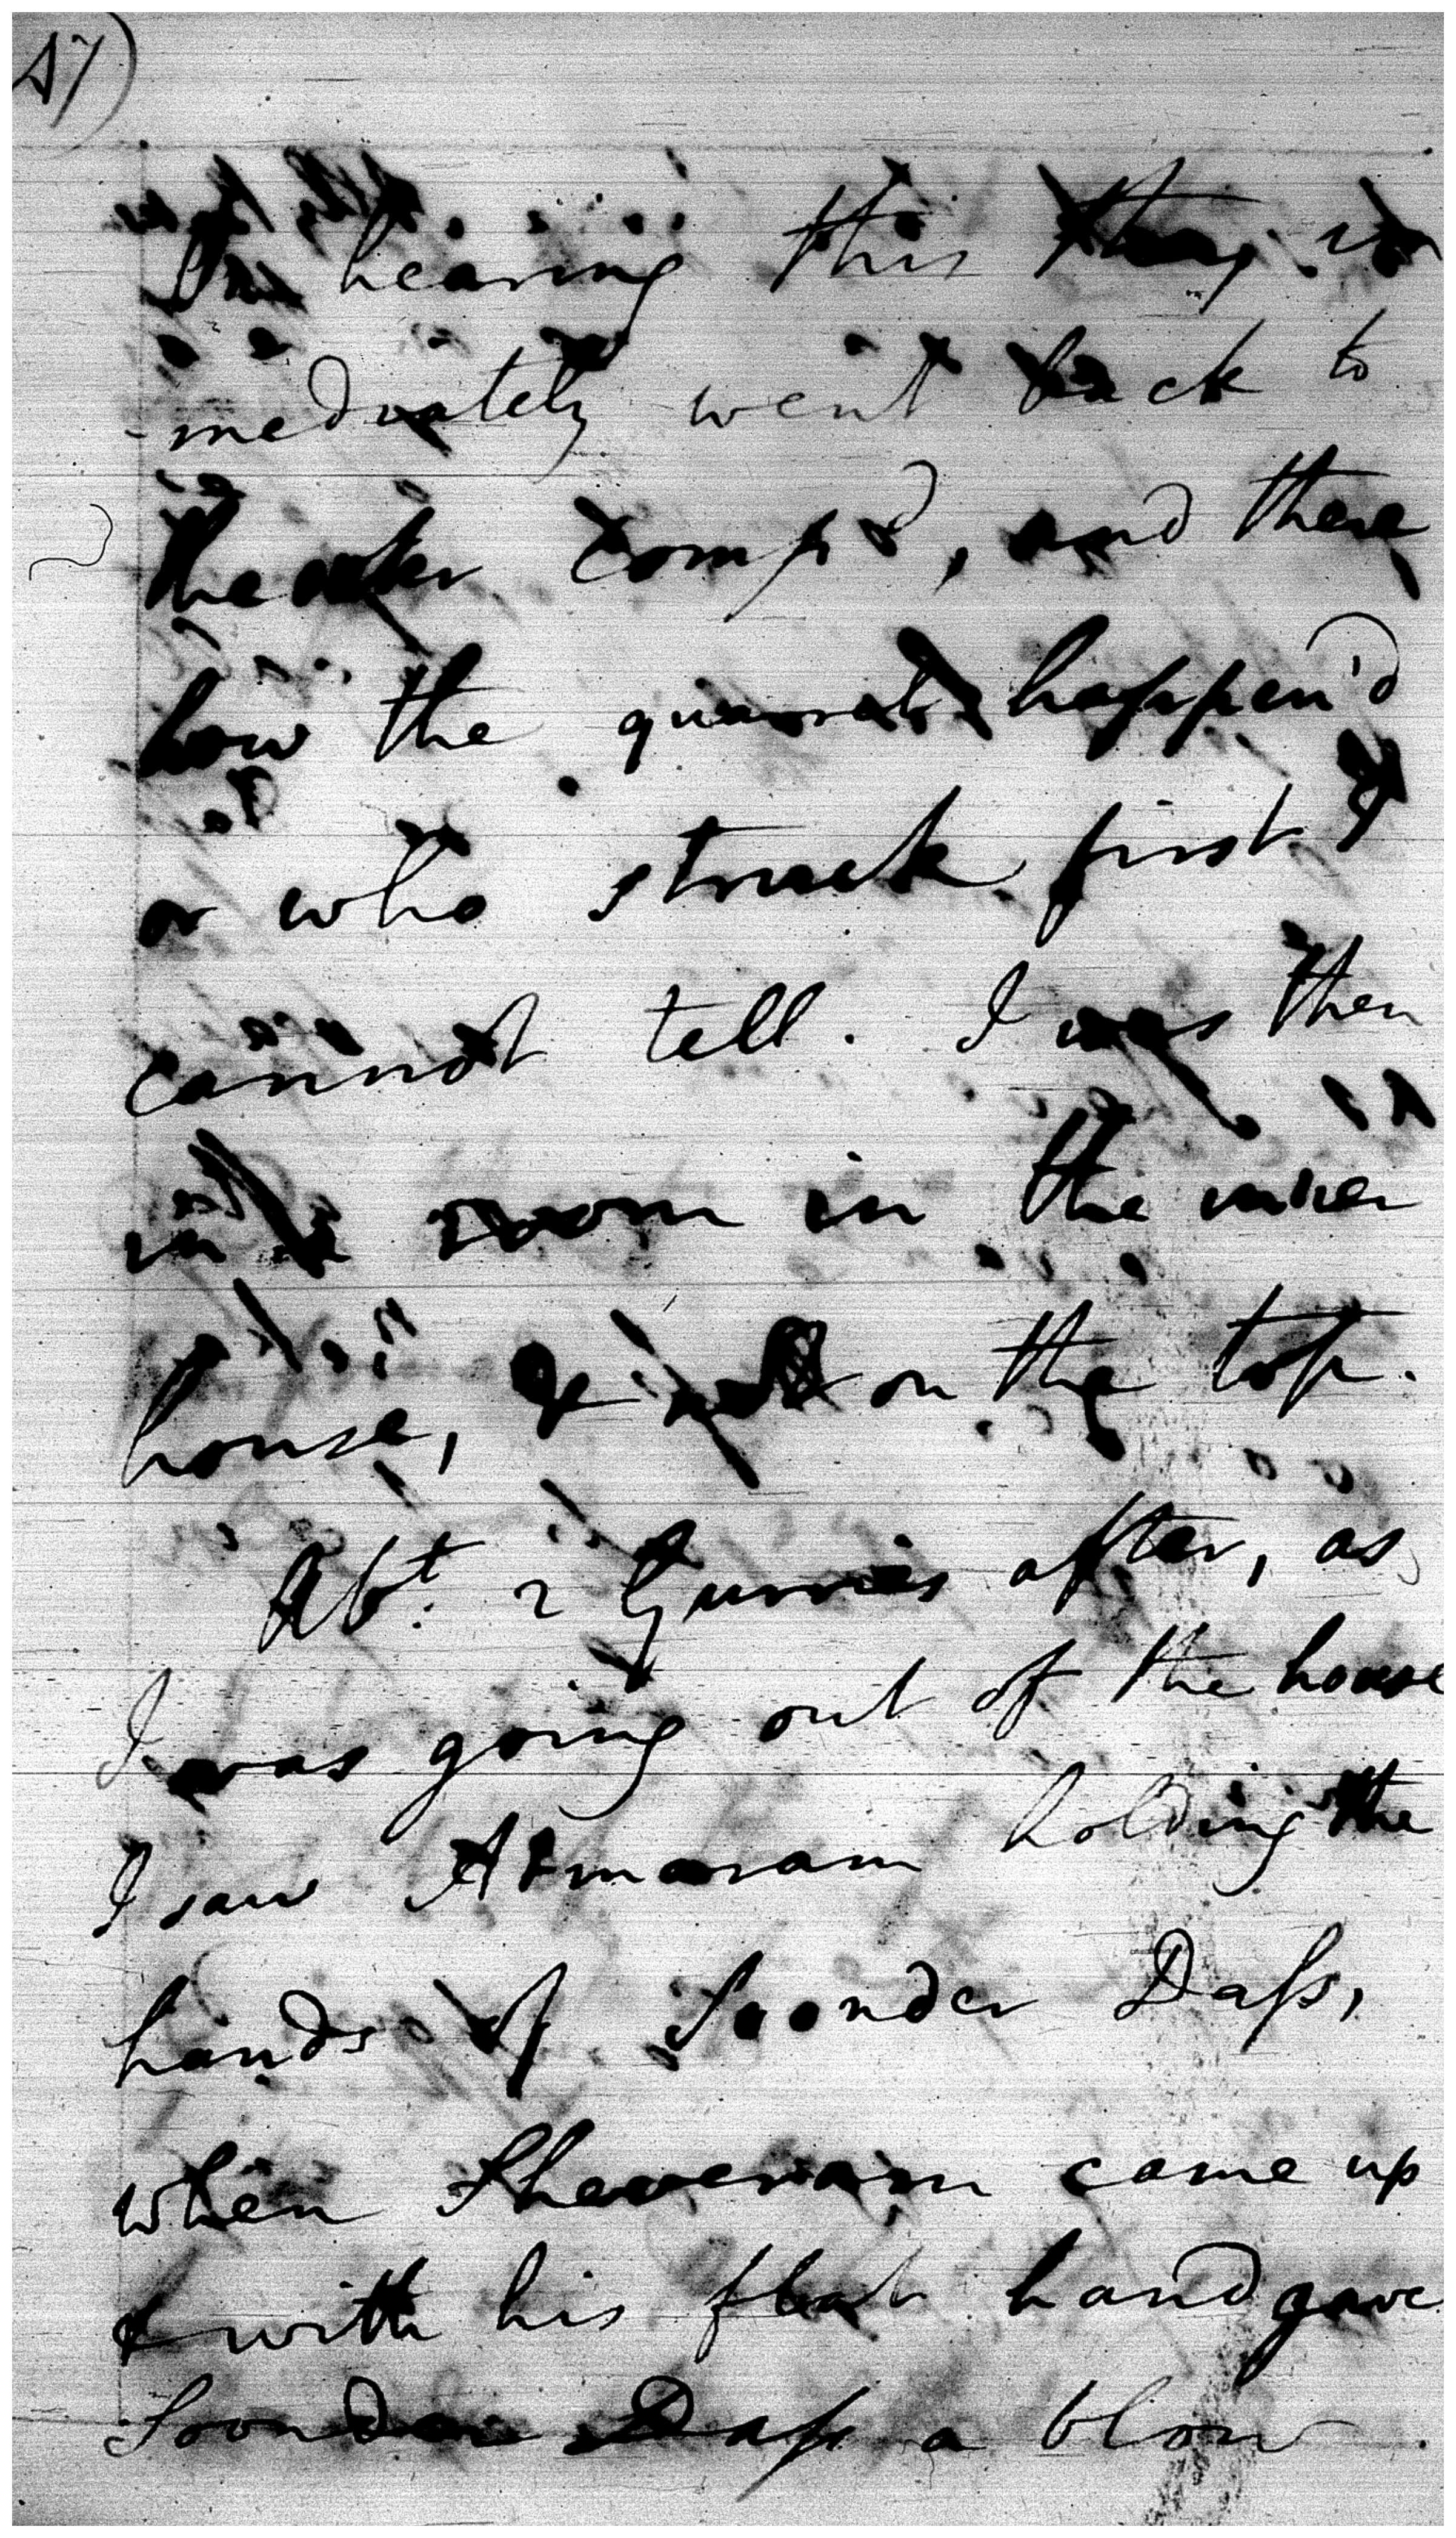 47)
On hearing this they im
-mediately went back to
the outer comp.d, and there
how the quarrel happen'd
or who struck first I
cannot tell. I was then
in a room in the inner
house, & on the top.
Abt. 2 Gurries after, as
I was going out of the house
I saw Atmaram holding the
hands of Soonder Dass,
when Shevaram came up
& with his flat hand gave
Soonder Dass a blow